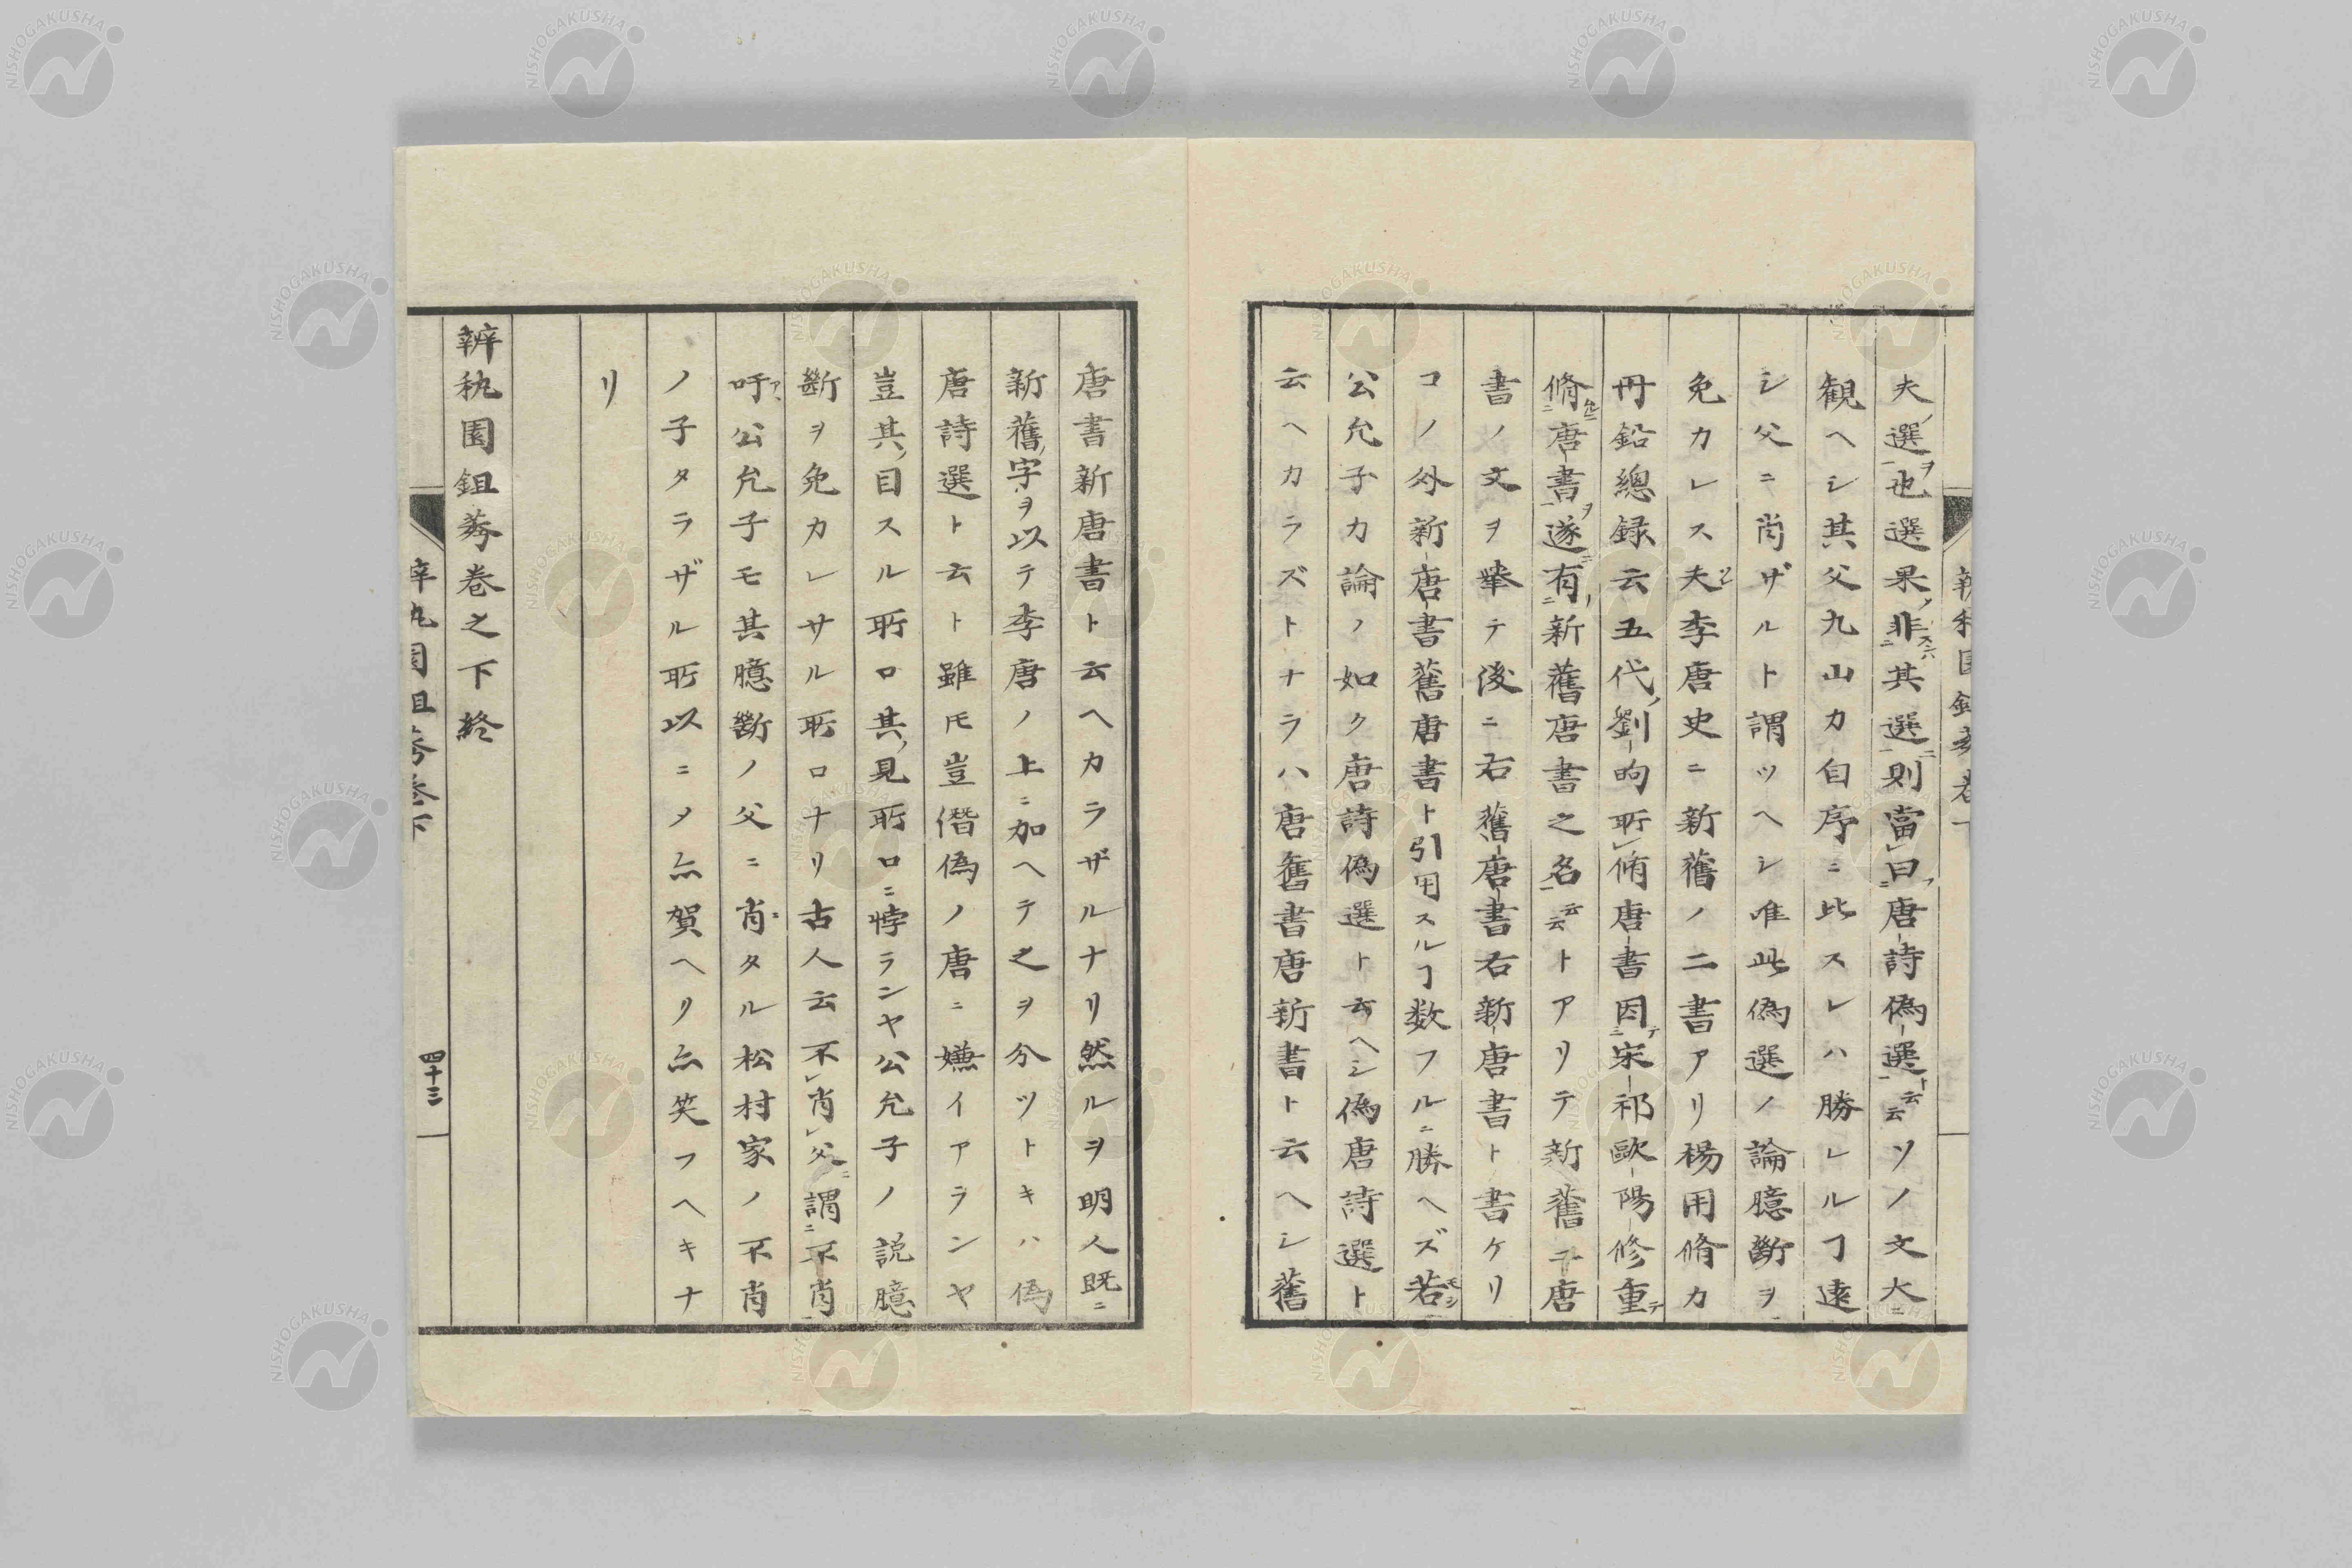 夫選ヲ也選果ノ非スハ其選ニ則當曰唐詩偽選ト云云ソノ文大ニ
観ヘシ其父九山カ自序ニ比スレハ勝レルヿ遠
シ父ニ肖ザルト謂ツヘシ唯此偽選ノ論臆斷ヲ
免カレス夫レ李唐史ニ新舊ノ二書アリ楊用脩カ
丹鉛總録云五代ノ劉昫所脩唐書因テ宋祁歐陽修重テ
脩唐書ヲ遂ニ有新舊唐書之名云云トアリテ新舊ニ唐
書ノ文ヲ挙テ後ニ右舊唐書右新唐書ト書ケリ
コノ外新唐書舊唐書ト引用スルヿ数フルニ勝ヘズ若モシ
公允子カ論ノ如ク唐詩偽選ト云ヘシ偽唐詩選ト
云ヘカラズトナラハ唐舊書唐新書ト云ヘシ舊
唐書新唐書ト云ヘカラザルナリ然ルヲ明人既ニ
新舊ノ字ヲ以テ李唐ノ上ニ加ヘテ之ヲ分ツトキハ偽
唐詩選ト云ト雖モ豈僭偽ノ唐ニ嫌イアランヤ
豈其ノ目スル所ロ其ノ見所ロニ悖ランヤ公允子ノ説臆
斷ヲ免カレサル所ロナリ古人云不肖父謂ニ不肖
吁アヽ公允子モ其臆斷ノ父ニ肖ニタル松村家ノ不肖
ノ子タラザル所以ニ〆亦賀ヘリ亦笑フヘキナ
リ
辨䆿園鉏莠巻之下終
四十三